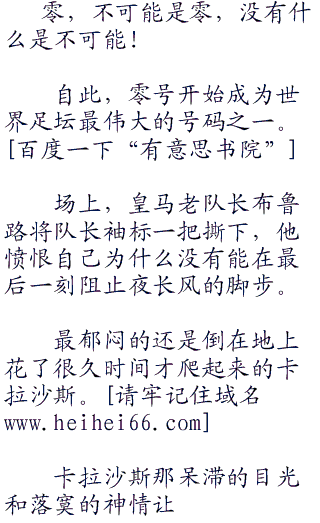 零，不可能是零，没有什
么是不可能！
自此，零号开始成为世
界足坛最伟大的号码之一。
[百度一下“有意思书院”]
场上，皇马老队长布鲁
路将队长袖标一把撕下，他
愤恨自己为什么没有能在最
后一刻阻止夜长风的脚步。
最郁闷的还是倒在地上
花了很久时间才爬起来的卡
拉沙斯。[请牢记住域名
www.heihei66.com]
卡拉沙斯那呆滞的目光
和落寞的神情让